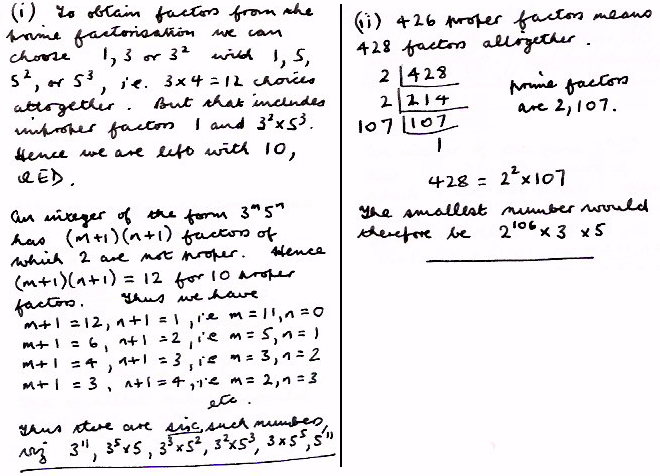 (i) To obtain factors from the
prime factorisation we can
choose 1, 3 or 3² with 1, 5,
5², or 5³, i.e. 3×4 = 12 choices
altogether. But that includes
improper factors 1 and 3²×5³.
Hence we are left with 10,
QED.
An integer of the form 3ᵐ5ⁿ
has (m+1)(n+1) factors of
which 2 are not proper. Hence
(m+1)(n+1) = 12 for 10 proper
factors. Thus we have
m+1 = 12, n+1 = 1, i.e m = 11, n = 0
m+1 = 6, n+1 = 2, i.e m = 5, n = 1
m+1 = 4, n+1 = 3, i.e m = 3, n = 2
m+1 = 3, n+1 = 4, i.e m = 2, n = 3
etc.
Thus there are six such numbers,
viz 3¹¹, 3⁵×5, 3³×5², 3²×5³, 3×5⁵, 5¹¹
(ii) 426 proper factors means
428 factors altogether.
2 |428
2 |214
107 |107
1
prime factors
are 2, 107.
428 = 2²×107
The smallest number would
therefore be 2¹⁰⁶ × 3 × 5